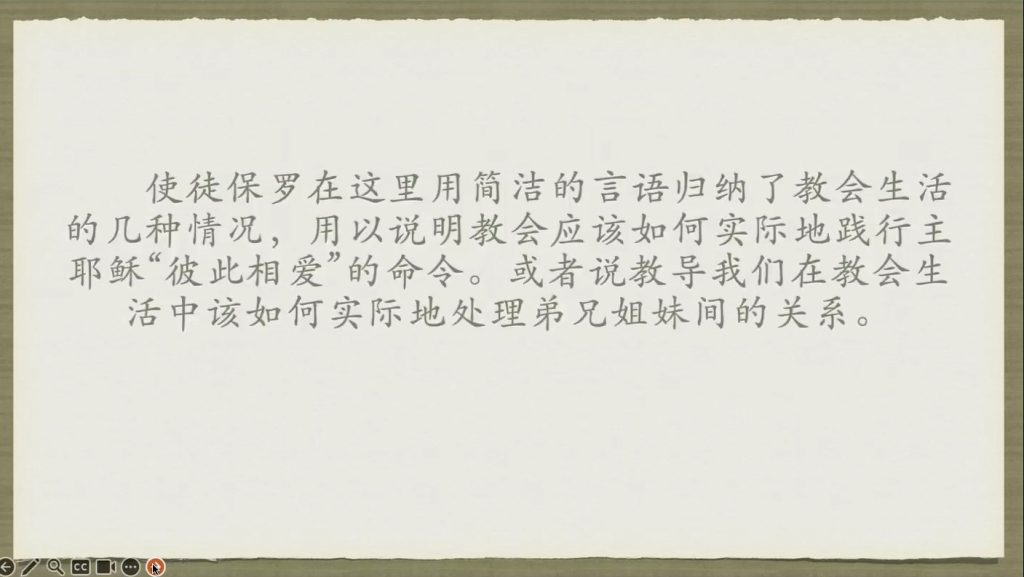 使徒保罗在这里用简洁的言语归纳了教会生活
的几种情况，用以说明教会应该如何实际地践行主
耶稣“彼此相爱”的命令。或者说教导我们在教会生
活中该如何实际地处理弟兄姐妹间的关系。
CC